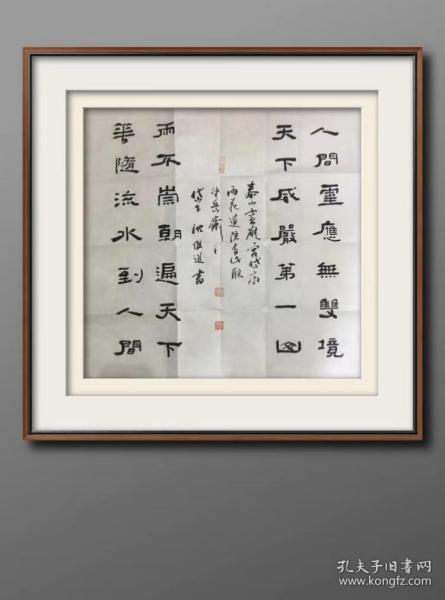 人間靈應無雙境
天下威嚴第一山
泰山靈應宮岱庙
雨花道院此联
書
雨不崇朝遍天下
華隨流水到人間
孔夫子旧书网
www.kongfz.com